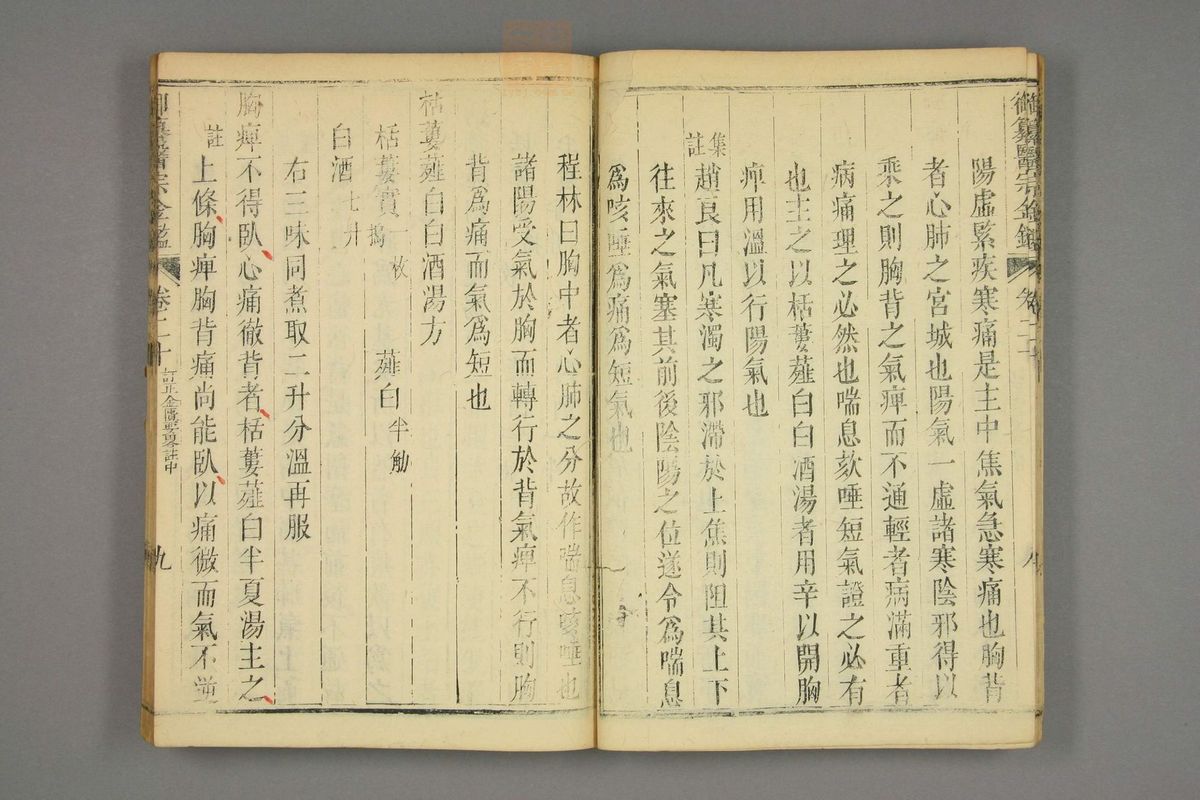 御纂醫宗金鑑 卷二十
陽虛緊疾寒痛是主中焦氣急寒痛也胸背
者心肺之宮城也陽氣一虛諸寒陰邪得以
乘之則胸背之氣痺而不通輕者病滿重者
病痛理之必然也喘息欬唾短氣證之必有
也主之以栝蔞薤白白酒湯者用辛以開胸
痺用溫以行陽氣也
集註
趙良曰凡寒濁之邪滯於上焦則阻其上下
往來之氣塞其前後陰陽之位遂令為喘息
為咳唾為痛為短氣也
程林曰胸中者心肺之分故作喘息咳唾也
諸陽受氣於胸而轉行於背氣痺不行則胸
背為痛而氣為短也
栝蔞薤白白酒湯方
栝蔞實一枚搗 薤白半觔
白酒七升
右三味同煮取二升分溫再服
胸痺不得臥心痛徹背者栝蔞薤白半夏湯主之
註上條胸痺胸背痛尚能臥以痛微而氣不逆
御纂醫宗金鑑 卷二十 訂正金匱要畧註中 九